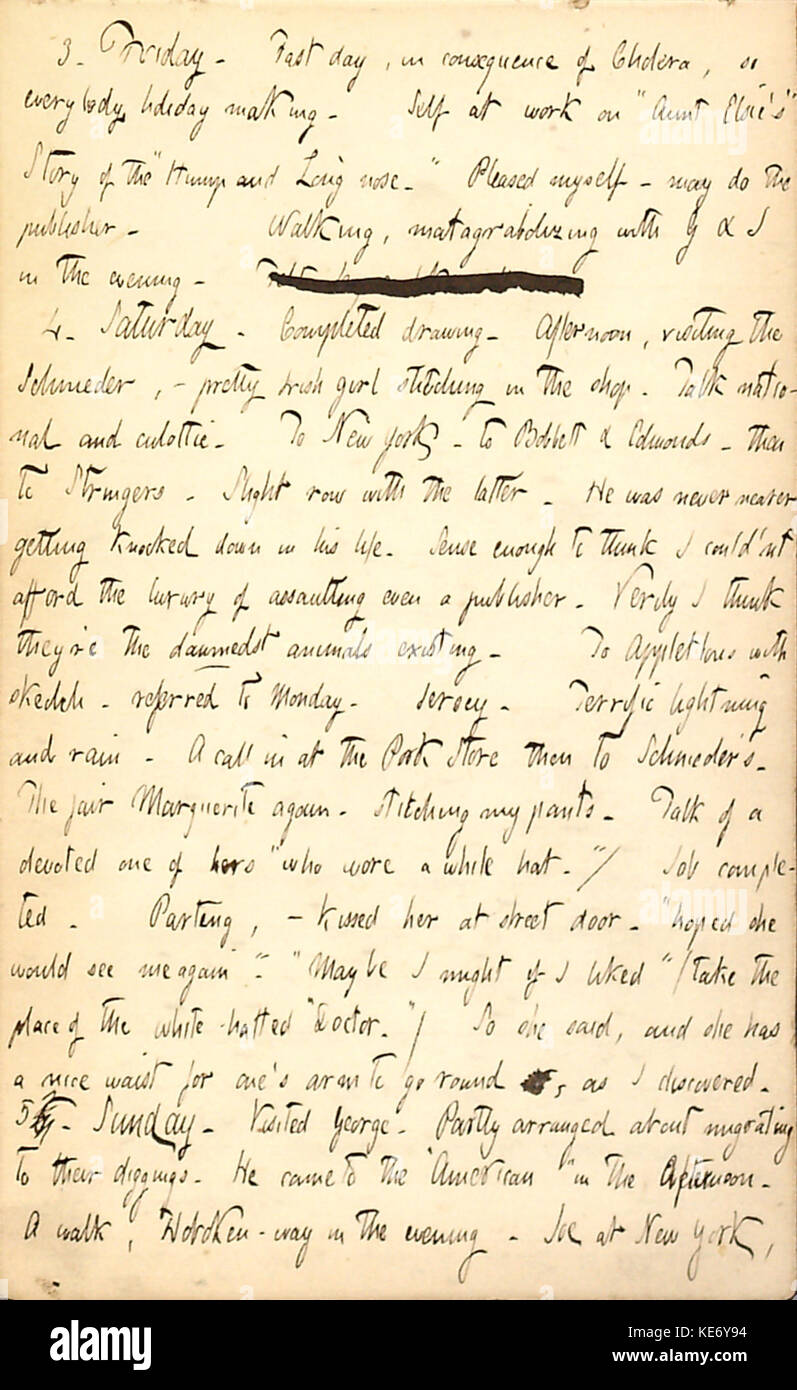 3. Friday. Fast day, in consequence of Cholera, so
everybody holiday making. Self at work on "Aunt Elsie's"
Story of the "Hump and Long nose." Pleased myself - may do the
publisher. Walking, matagrabolizing with G & J
in the evening.
4. Saturday. Completed drawing. Afternoon, visiting the
Schnieder, - pretty Irish girl stitching in the shop. Talk natio-
nal and culottic. To New York, - to Bobbett & Edmonds. then
to Stringers. Slight row with the latter. He was never nearer
getting knocked down in his life. Sense enough to think I could'nt
afford the luxury of assaulting even a publisher. Verily I think
they're the damnedst animals existing. To Appletons with
sketch. referred to Monday. Jersey. Terrific lightning
and rain. A call in at the Pork Store then to Schnieder's.
The fair Marguerite again. stitching my pants. Talk of a
devoted one of hers "who wore a white hat."/ Job comple-
ted. Parting, - kissed her at street door. "hoped she
would see me again" - "Maybe I might if I liked" / take the
place of the white-hatted "Doctor." / So she said, and she has
a nice waist for one's arm to go round, as I discovered.
5. Sunday. Visited George. Partly arranged about migrating
to their diggings. He came to the "American" in the Afternoon.
A walk, Hoboken-way in the evening. Joe at New York,
alamy
a
Image ID: KE6Y94
www.alamy.com